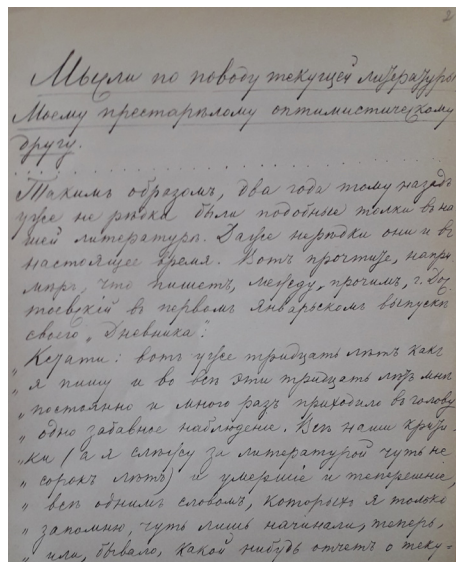 2
Мысли по поводу текущей литературы
Моему престарѣлому оптимистическому
другу.
Такимъ образомъ, два года тому назадъ
уже не рѣдки были подобные толки въ на
шей литературѣ. Даже нерѣдки они и въ
настоящее время. Вотъ прочтите, напри
мѣръ, что пишетъ, между, прочимъ, г. Дос
тоевскій въ первомъ Январьскомъ выпускѣ
своего „Дневника":
„Кстати: вотъ уже тридцать лѣтъ какъ
„я пишу и во всѣ эти тридцать лѣтъ мнѣ
„постоянно и много разъ приходило въ голову
„одно забавное наблюденіе. Всѣ наши крити-
„ки (а я слѣжу за литературой чуть не
„сорокъ лѣтъ) и умершіе и теперешніе,
„всѣ однимъ словомъ, которыхъ я только
„запомню, чуть лишь начинали, теперь,
„или, бывало, какой нибудь отчетъ о теку-